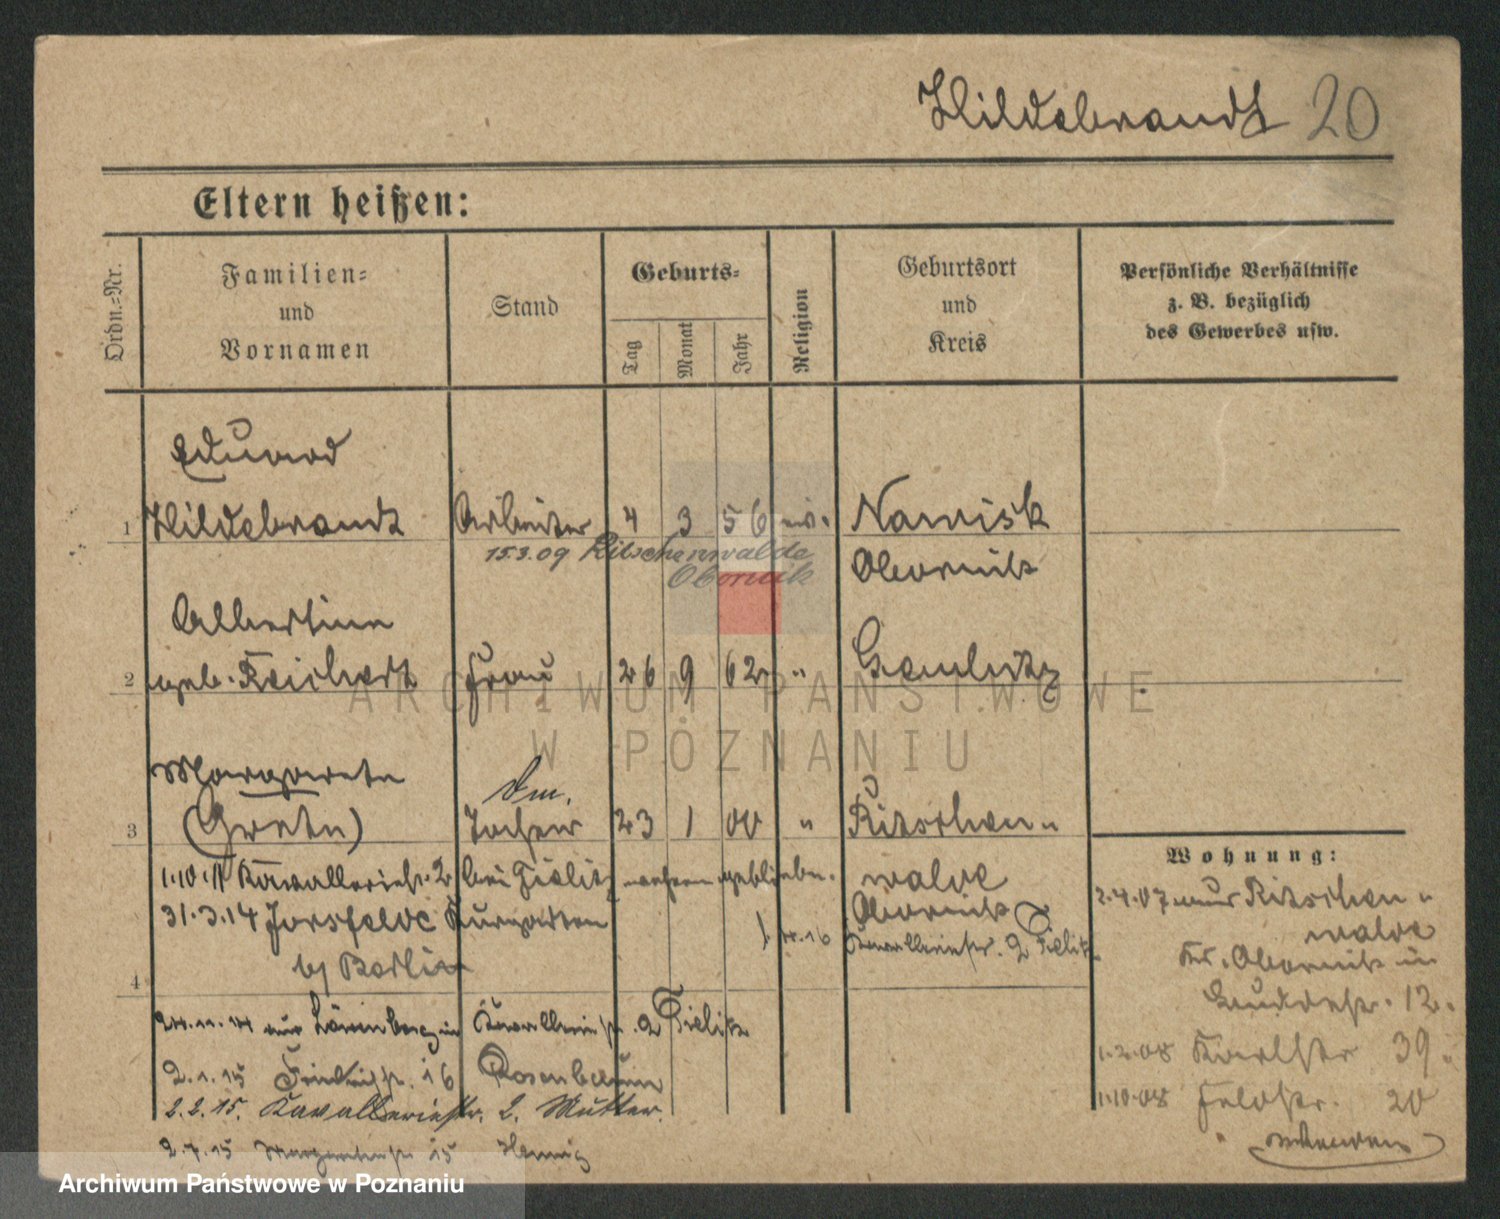 Hildebrandt 20
Eltern heißen:
Ordn.-Nr.
Familien-
und
Vornamen
Stand
Geburts-
Tag
Monat
Jahr
Religion
Geburtsort
und
Kreis
Persönliche Verhältnisse
z. B. bezüglich
des Gewerbes usw.
Eduard
1 Hildebrandt Arbeiter 4 3 56 ev. Nawisk
15.3.09 Ritschenwalde
Obornik
Obornik
Albertine
2 geb. Reichert Frau 26 9 62 "
Margarete
Dm.
3 (Grete) Tochter 23 1 00 " Ritschen-
walde
Obornik
1.10.11 Kavalleriestr. 2 bei Fielitz
31.3.14
b/ Berlin
4
24.11.14 aus in Kavalleriestr. 2 Fielitz
2.1.15 16 Rosenbaum
2.2.15. Kavalleriestr. 2. Mutter.
2.7.15 Margaretenstr 15 Hennig
Wohnung:
2.4.07 aus Ritschen-
walde
Kr. Obornik in
12.
1.2.08 Karlstr 39.
1.10.08 Feldstr. 20
ARCHIWUM PAŃSTWOWE
W POZNANIU
Archiwum Państwowe w Poznaniu